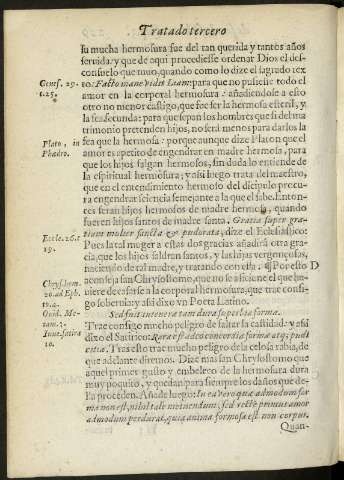 Tratado tercero
su mucha hermosura fue del tan querida y tantos años
seruida: y que de aqui procediesse ordenar Dios el des-
consuelo que tuuo, quando como lo dize el sagrado tex
Genes. 29.
t. 25.
to: Facto mane vidit Liam: para que no pusiesse todo el
amor en la corporal hermosura: añadiendose a esto
otro no menor castigo, que fue ser la hermosa esteril, y
la fea fecunda: para que sepan los hombres que si del ma
trimonio pretenden hijos, no será menos para darlos la
Plato, in
Phædro.
fea que la hermosa: porque aunque dize Platon que el
amor es apetito de engendrar en madre hermosa, para
que los hijos salgan hermosos, sin duda lo entiende de
la espiritual hermosura; y assi luego trata del maestro,
que en el entendimiento hermoso del dicipulo procu-
ra engendrar sciencia semejante a la que el sabe. Enton-
ces seran hijos hermosos de madre hermosa, quando
fueren hijos santos de madre santa. Gratia super gra-
Eccle. 26. t
19.
tiam mulier sancta & pudorata, dize el Ecclesiastico:
Pues la tal muger a estas dos gracias añadirá otra gra-
cia, que los hijos saldran santos, y las hijas vergonçosas,
naciendo de tal madre, y tratando con ella. ¶ Por esto D
Chrysostom.
20. ad Eph.
aconseja san Chrysostomo, que no se aficione el que hu-
uiere de casarse a la corporal hermosura, que trae consi-
go soberuia: y assi dixo vn Poeta Latino.
Ouid. Me-
tam. 3.
Sed fuit in tenera tam dura superbia forma.
Iuue. satira
10.
Trae consigo mucho peligro de faltar la castidad: y assi
dixo el Satirico: Rara est adeo concordia formæ atq; pudi
citiæ. Tras esto trae mucho peligro de la celosa rabia, de
que adelante diremos. Dize mas san Chrysostomo que
aquel primer gusto y embeleco de la hermosura dura
muy poquito, y quedan para siempre los daños que de-
lla proceden. Añade luego: In ea vero quæ admodum for
ma non est, nihil tale metuendum, sed recte primus amor
admodum perdurat, quia animæ formosa est non corpus.
Quan-